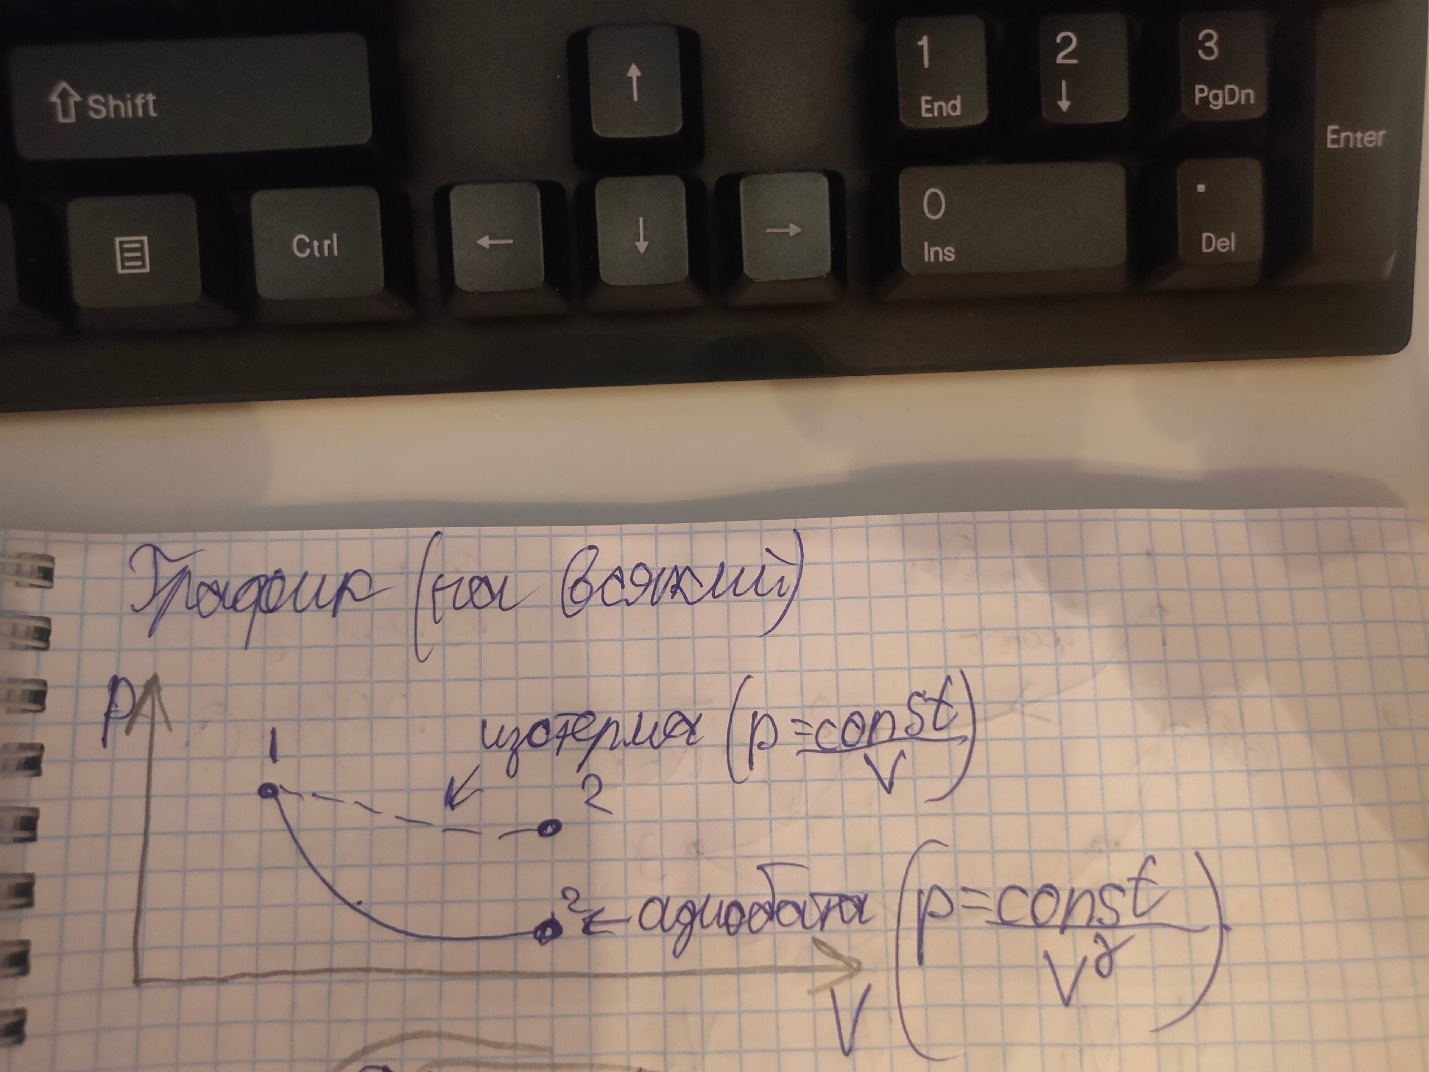 ⇧ Shift
↑
1
End
2
↓
3
PgDn
Enter
Ctrl
←
↓
→
0
Ins
.
Del
График (на всякий)
p
1
изотерма (p = const / V)
2
2 ← адиабата (p = const / V^γ)
V